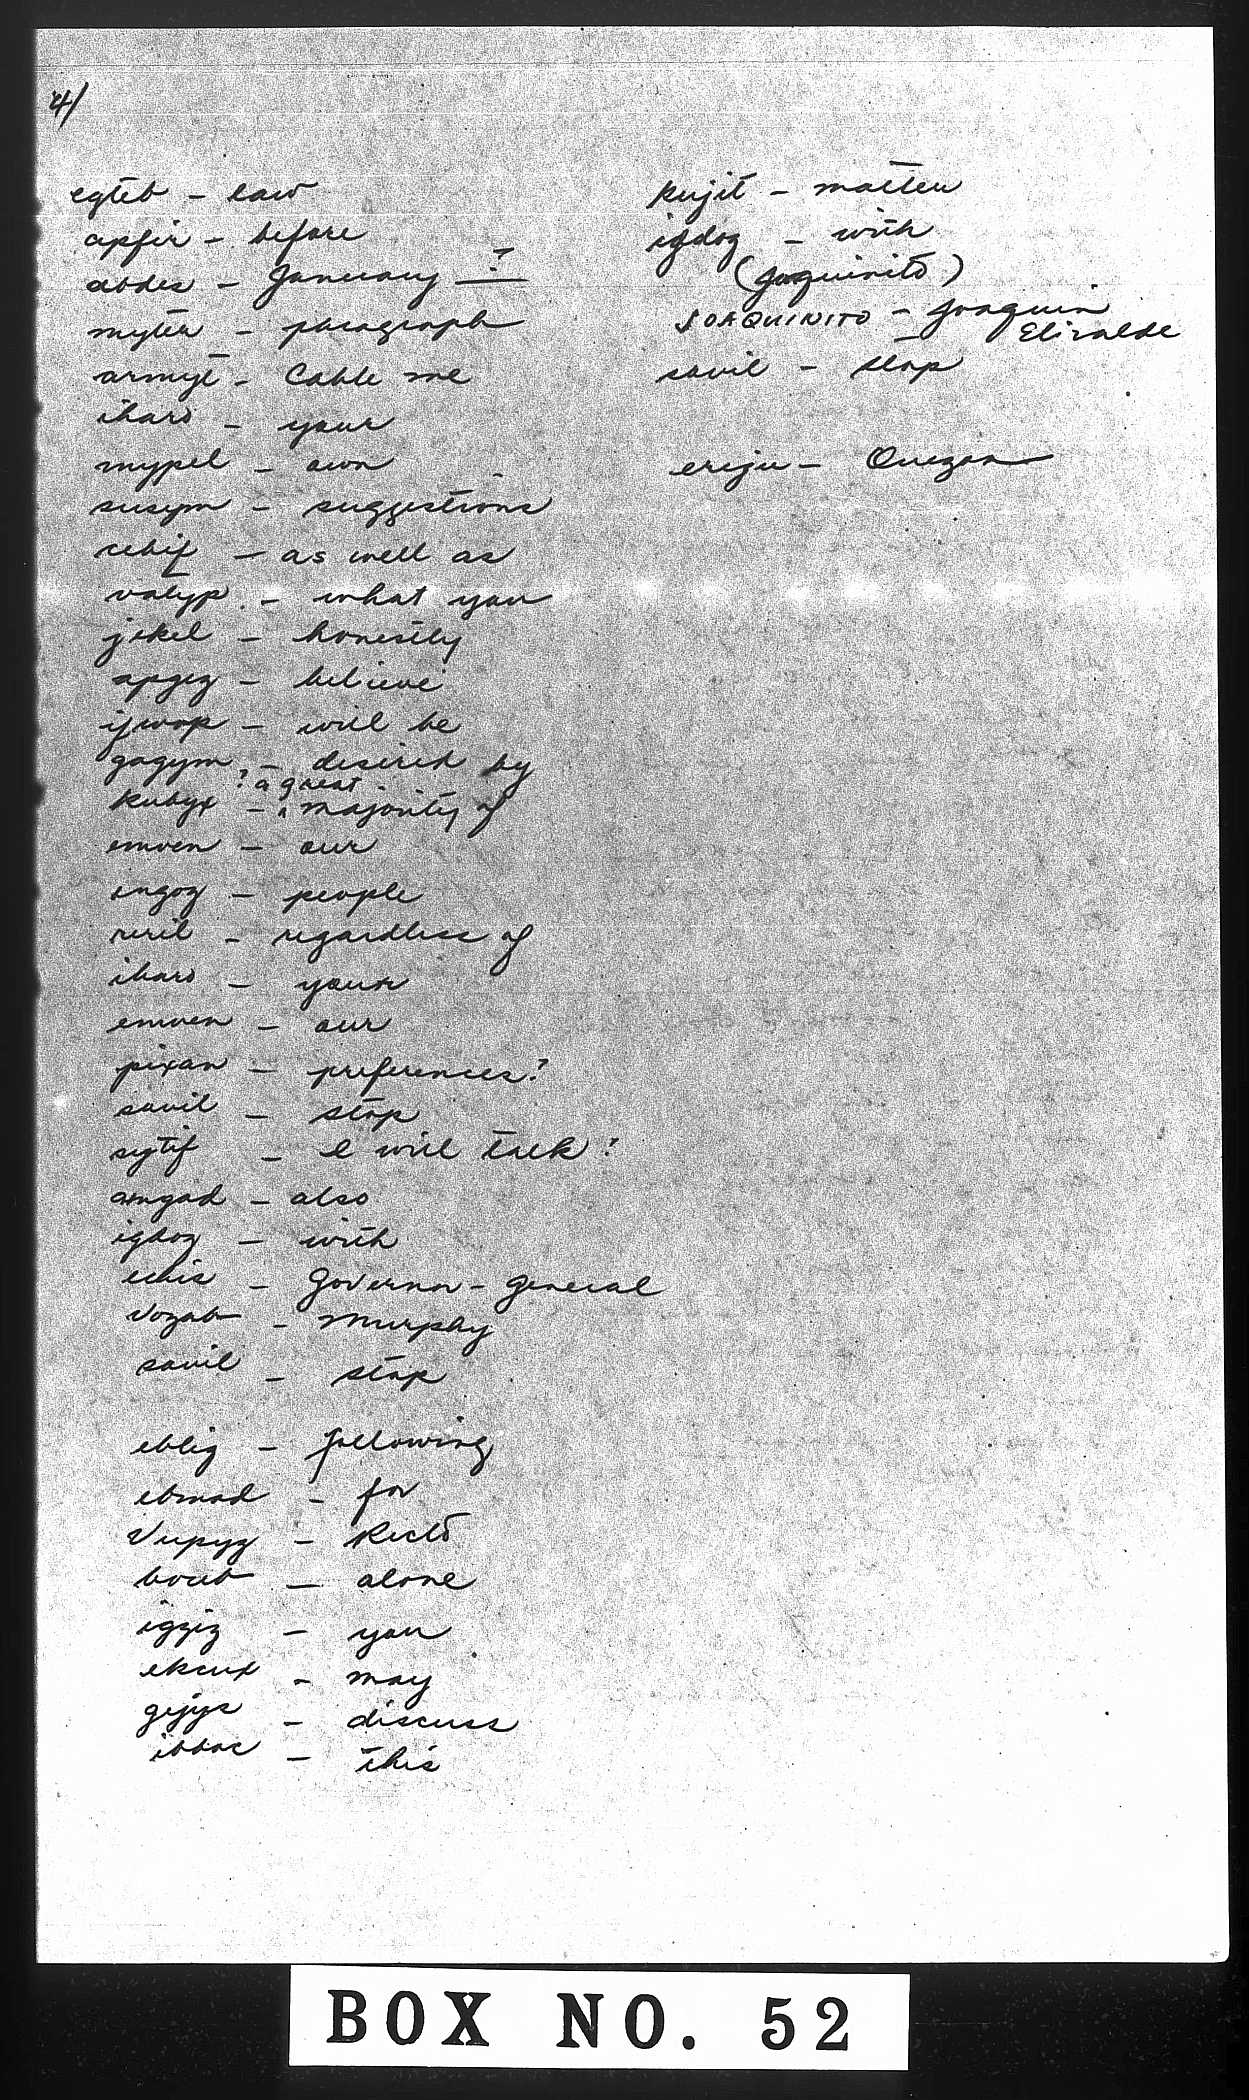 4/
egteb - law
apfir - before
abdes - January - ?
myter - paragraph
armyt - Cable me
iharo - your
mypel - own
susym - suggestions
cebif - as well as
valyp - what you
jekel - honestly
apgez - believe
ijwop - will be
gagym - desired by
? a great
kubyx - ^ majority of
emven - our
ongoz - people
reril - regardless of
iharo - your
emven - our
pixan - preferences?
savil - stop
sytif - I will talk?
amgad - also
igdoz - with
echis - Governor-General
vozab - Murphy
savil - stop
eblig - following
ebmad - for
Vupyz - Recto
bocub - alone
igziz - you
ekcux - may
gyjys - discuss
ibbac - this
kujit - matter
igdoz - with
(Joaquinito)
JOAQUINITO - Joaquin
Elizalde
savil - stop
ereju - Quezon
BOX NO. 52